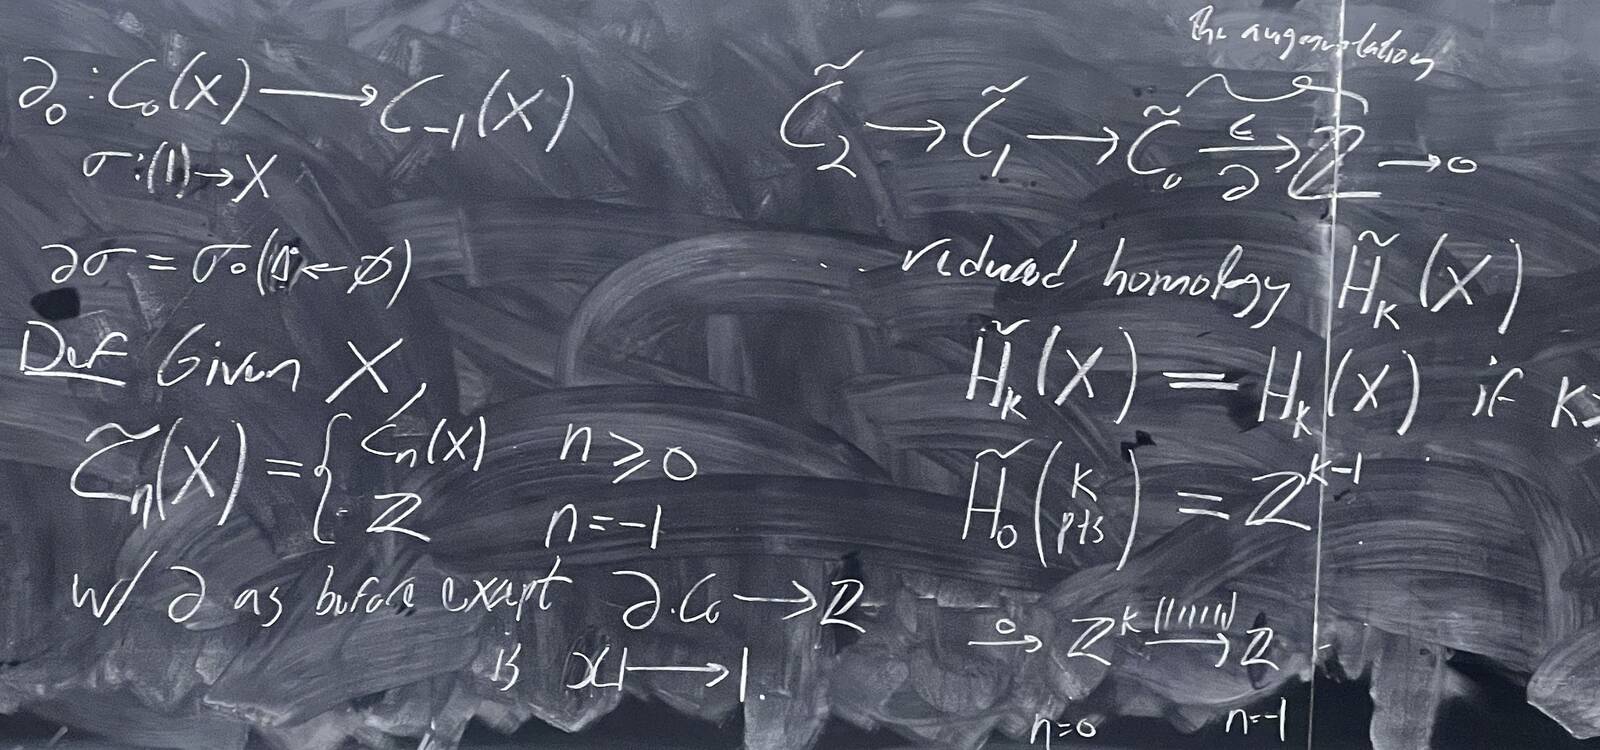 ∂₀ : C₀(X) ⟶ C₋₁(X)
σ : (1) → X
∂σ = σ∘(Δ ← ∅)
Def Given X,
C̃ₙ(X) = { Cₙ(X) n ⩾ 0
ℤ n = -1
w/ ∂ as before except ∂: C₀ ⟶ ℤ
is x ⟼ 1.
the augmentation
C̃₂ ⟶ C̃₁ ⟶ C̃₀ ϵ ⟶ ∂ ℤ ⟶ 0
... reduced homology H̃ₖ(X)
H̃ₖ(X) = Hₖ(X) if K>
H̃₀(K pts) = ℤᵏ⁻¹
0 ⟶ ℤᵏ ⟶ ℤ
n=0 n=-1